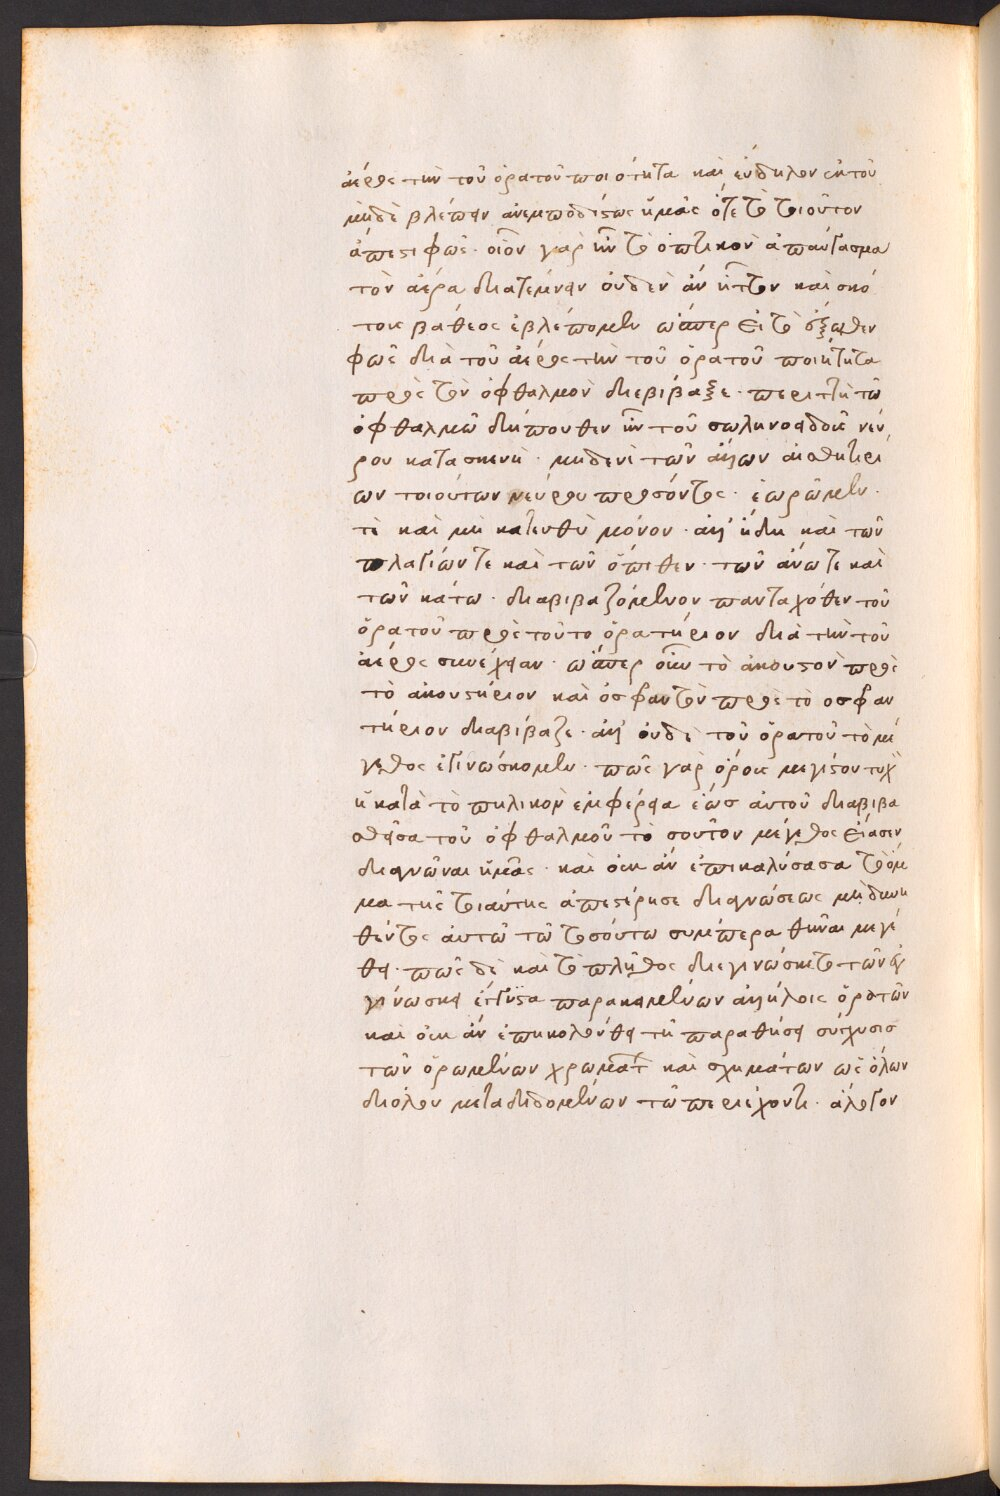 ἀέρος τὴν τοῦ ὁρατοῦ ποιότητα καὶ εὔδηλον ἐκ τοῦ
μηδὲ βλέπειν ἀνεμποδίστως ἡμᾶς ὅτε τὸ τοιοῦτον
ἄπεστι φῶς· οἷον γὰρ ἦν τὸ ὀπτικὸν ἀπαύγασμα
τὸν ἀέρα διατέμνειν οὐδὲν ἂν ἧττον καὶ σκό
τους βάθεος ἐβλέπομεν ὥσπερ εἰ τὸ ἔξωθεν
φῶς διὰ τοῦ ἀέρος τὴν τοῦ ὁρατοῦ ποιότητα
πρὸς τὸν ὀφθαλμὸν διεβίβαζε· περιττὴ τῶ
ὀφθαλμῶ δήπουθεν ἦν τοῦ σωληνοειδοῦς νεύ
ρου κατασκευὴ· μηδενὶ τῶν ἄλλων αἰσθητηρί
ων τοιούτων νεύρου προσόντος· ἑωρῶμεν
τὲ καὶ μὴ κατευθὺ μόνον· ἀλλ' ἤδη καὶ τῶν
πλαγίων τε καὶ τῶν ὄπιθεν· τῶν ἄνω τε καὶ
τῶν κάτω· διαβιβαζόμενον πανταχόθεν τοῦ
ὁρατοῦ πρὸς τοῦτο ὁρατήριον διὰ τὴν τοῦ
ἀέρος συνέχειαν· ὥσπερ οὖν τὸ ἀκουστὸν πρὸς
τὸ ἀκουστήριον καὶ ὀσφαντὸν πρὸς τὸ οσφαν
τήριον διαβιβάζει· ἀλλ' οὐδὲ τοῦ ὁρατοῦ τὸ μέ
γεθος ἐγινώσκομεν· πῶς γὰρ ὄρους μεγίστου τυχὸν
ἢ κατὰ τὸ πηλικὸν ἐμφέρεια ἕως αὐτοῦ διαβιβα
σθεῖσα τοῦ ὀφθαλμοῦ τὸ σοῦτον μέγεθος εἴασεν
διαγνῶναι ἡμᾶς· καὶ οὐκ ἂν ἐπικαλύσασα τὸ ὄμ
μα τῆς τοιαύτης ἀπεστέρησε διαγνώσεως μὴ δυνη
θέντος αὐτῶ τῶ τοσούτω συμπεραθῆναι μεγέ
θει· πῶς δὲ καὶ τὸ πλῆθος διεγινώσκετο τῶν
γινώσκει ἔγγιστα παρακειμένων ἀλλήλοις ὁρατῶν
καὶ οὐκ ἂν ἐπηκολούθει τῆ παραθήσει σύγχυσις
τῶν ὁρωμένων χρωμάτων καὶ σχημάτων ὡς ὅλων
διόλου μεταδιδομένων τῶ περιέχοντι· ἄλογον